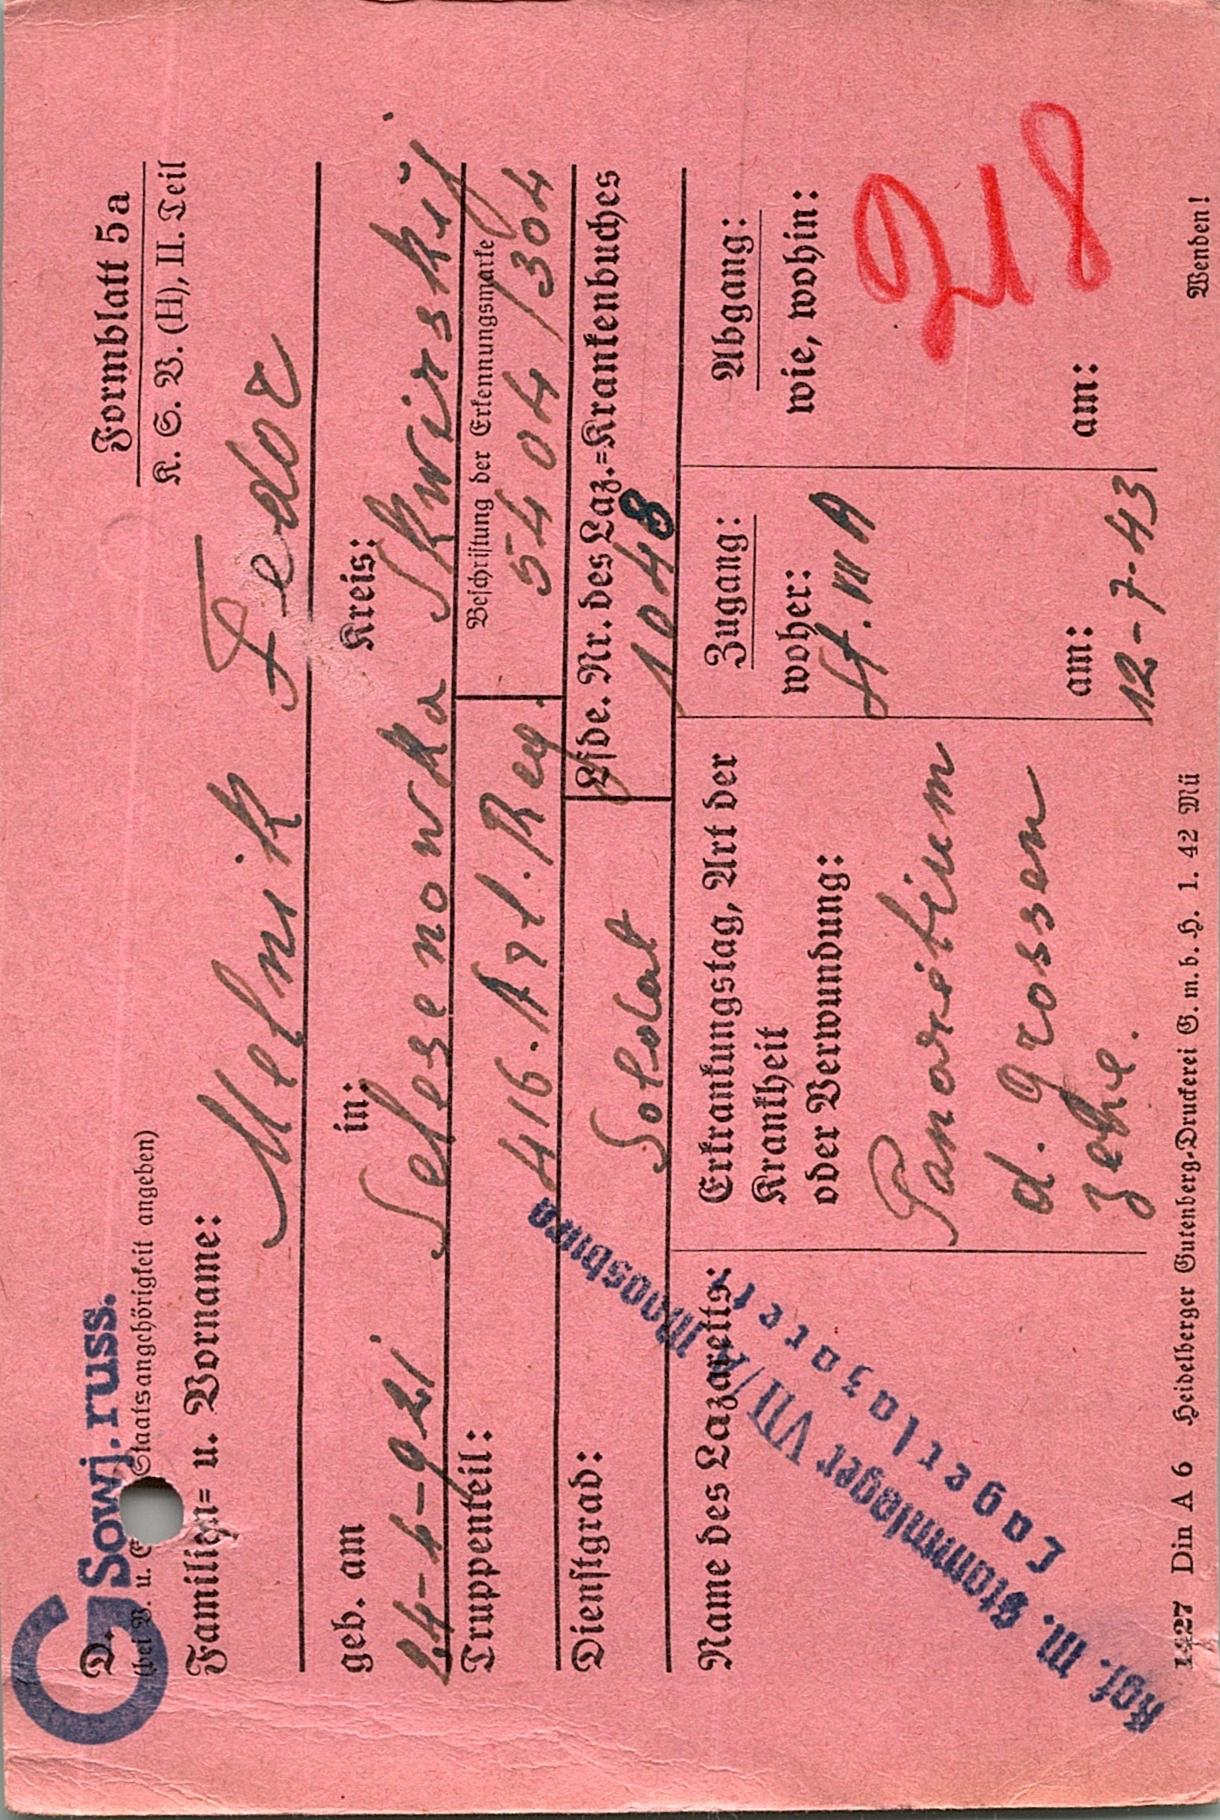 G Sowj. russ.
D.
Formblatt 5a
K. S. V. (H), II. Teil
Staatsangehörigkeit angeben)
Familien- u. Vorname:
Melnik Fedor
geb. am in: Kreis:
24-4-921 Selesenowka Skwirskij
Truppenteil: 416. Art. Reg.
Beschriftung der Erkennungsmarke
5404/304
Dienstgrad: Soldat
Lfde. Nr. des Laz.=Krankenbuches
1048
Name des Lazaretts:
Kgf. M. Stammlager VII/A Moosburg
Lagerlazarett
Erkrankungstag, Art der
Krankheit
oder Verwundung:
Panaritium
d. Grossen
Zehe.
Zugang:
woher:
St. VII A
am:
12-7-43
Abgang:
wie, wohin:
218
am:
1427 Din A 6 Heidelberger Gutenberg-Druckerei G. m. b. H. 1. 42 Mü
Wenden!